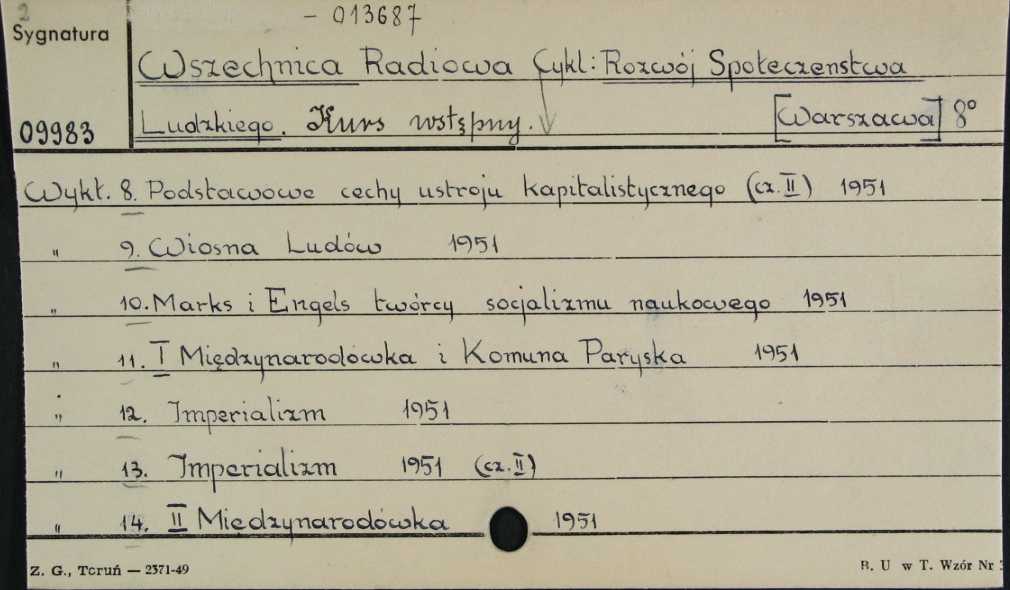 2
Sygnatura
– 013687
Wszechnica Radiowa Cykl: Rozwój Społeczenstwa
09983
Ludzkiego. Kurs wstępny. [Warszawa] 8°
Wykł. 8. Podstawowe cechy ustroju kapitalistycznego (cz. II) 1951
" 9. Wiosna Ludów 1951
" 10. Marks i Engels twórcy socjalizmu naukowego 1951
" 11. I Międzynarodówka i Komuna Paryska 1951
" 12. Imperializm 1951
" 13. Imperializm 1951 (cz. II)
" 14. II Międzynarodówka 1951
Z. G., Toruń — 2371-49
B. U w T. Wzór Nr